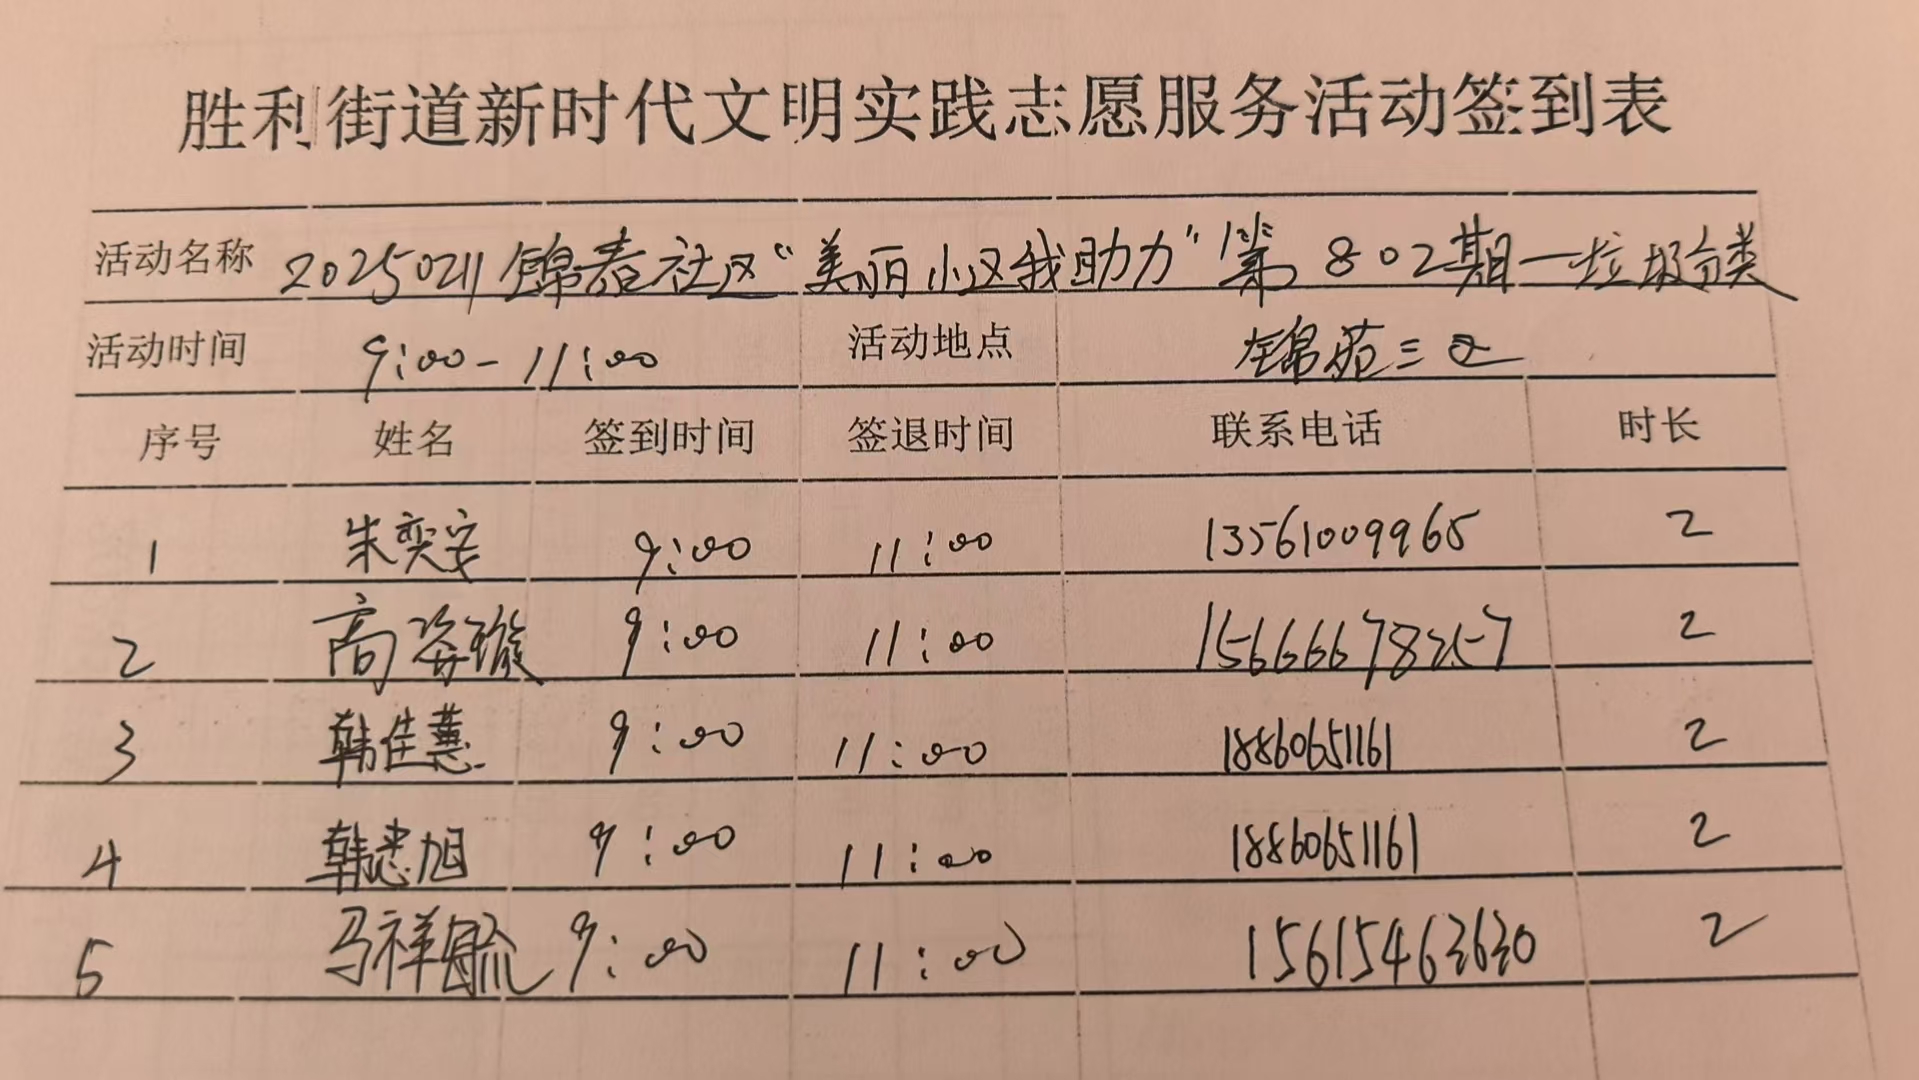 胜利街道新时代文明实践志愿服务活动签到表
活动名称 20250211锦春社区“美丽小区我助力”第802期—垃圾分类
活动时间 9:00-11:00 活动地点 锦苑三区
序号 姓名 签到时间 签退时间 联系电话 时长
1 朱奕安 9:00 11:00 13561009965 2
2 高姿璇 9:00 11:00 15666678257 2
3 韩佳慧 9:00 11:00 18860651161 2
4 韩忠旭 9:00 11:00 18860651161 2
5 马祥毓 9:00 11:00 15615463630 2